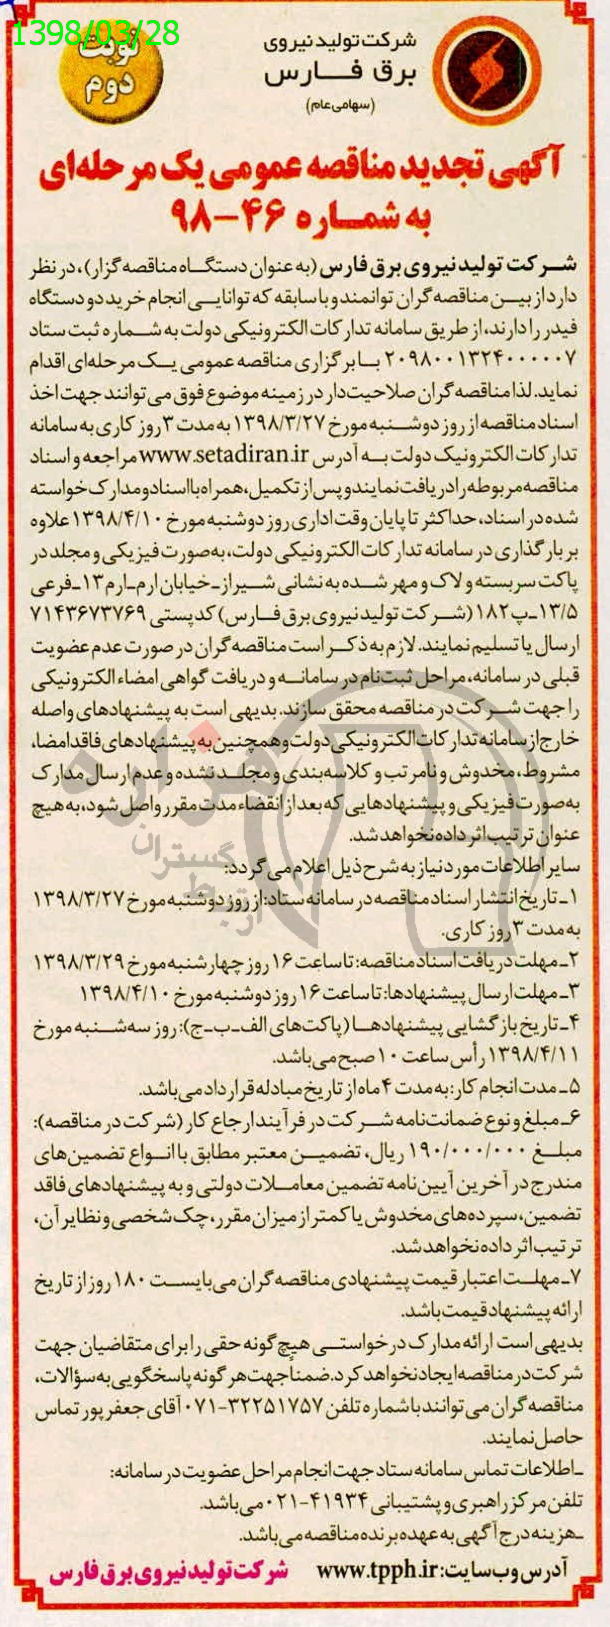 1398/03/28
نوبت
دوم
شرکت تولید نیروی
برق فارس
(سهامی عام)
آگهی تجدید مناقصه عمومی یک مرحله‌ای
به شماره ۴۶-۹۸
شرکت تولید نیروی برق فارس (به عنوان دستگاه مناقصه گزار)، در نظر
دارد از بین مناقصه گران توانمند و با سابقه که توانایی انجام خرید دو دستگاه
فیدر را دارند، از طریق سامانه تدارکات الکترونیکی دولت به شماره ثبت ستاد
۲۰۹۸۰۰۱۳۲۴۰۰۰۰۰۷ با برگزاری مناقصه عمومی یک مرحله‌ای اقدام
نماید. لذا مناقصه گران صلاحیت‌دار در زمینه موضوع فوق می‌توانند جهت اخذ
اسناد مناقصه از روز دوشنبه مورخ ۱۳۹۸/۳/۲۷ به مدت ۳ روز کاری به سامانه
تدارکات الکترونیک دولت به آدرس www.setadiran.ir مراجعه و اسناد
مناقصه مربوطه را دریافت نمایند و پس از تکمیل، همراه با اسناد و مدارک خواسته
شده در اسناد، حداکثر تا پایان وقت اداری روز دوشنبه مورخ ۱۳۹۸/۴/۱۰ علاوه
بر بارگذاری در سامانه تدارکات الکترونیکی دولت، به‌صورت فیزیکی و مجلد در
پاکت سربسته و لاک و مهر شده به نشانی شیراز-خیابان ارم-ارم ۱۳-فرعی
۱۳/۵-پ ۱۸۲ (شرکت تولید نیروی برق فارس) کدپستی ۷۱۴۳۶۷۳۷۶۹
ارسال یا تسلیم نمایند. لازم به ذکر است مناقصه گران در صورت عدم عضویت
قبلی در سامانه، مراحل ثبت‌نام در سامانه و دریافت گواهی امضاء الکترونیکی
را جهت شرکت در مناقصه محقق سازند. بدیهی است به پیشنهادهای واصله
خارج از سامانه تدارکات الکترونیکی دولت و همچنین به پیشنهادهای فاقد امضا،
مشروط، مخدوش و نامرتب و کلاسه‌بندی و مجلد نشده و عدم ارسال مدارک
به‌صورت فیزیکی و پیشنهادهایی که بعد از انقضاء مدت مقرر واصل شود، به هیچ
عنوان ترتیب اثر داده نخواهد شد.
سایر اطلاعات مورد نیاز به شرح ذیل اعلام می گردد:
۱-تاریخ انتشار اسناد مناقصه در سامانه ستاد: از روز دوشنبه مورخ ۱۳۹۸/۳/۲۷
به مدت ۳ روز کاری.
۲-مهلت دریافت اسناد مناقصه: تا ساعت ۱۶ روز چهارشنبه مورخ ۱۳۹۸/۳/۲۹
۳-مهلت ارسال پیشنهادها: تا ساعت ۱۶ روز دوشنبه مورخ ۱۳۹۸/۴/۱۰
۴-تاریخ بازگشایی پیشنهادها (پاکت‌های الف-ب-ج): روز سه‌شنبه مورخ
۱۳۹۸/۴/۱۱ رأس ساعت ۱۰ صبح می‌باشد.
۵-مدت انجام کار: به مدت ۴ ماه از تاریخ مبادله قرارداد می‌باشد.
۶-مبلغ و نوع ضمانت‌نامه شرکت در فرآیند ارجاع کار (شرکت در مناقصه):
مبلغ ۱۹۰/۰۰۰/۰۰۰ ریال، تضمین معتبر مطابق با انواع تضمین‌های
مندرج در آخرین آیین‌نامه تضمین معاملات دولتی و به پیشنهادهای فاقد
تضمین، سپرده‌های مخدوش یا کمتر از میزان مقرر، چک شخصی و نظایر آن،
ترتیب اثر داده نخواهد شد.
۷-مهلت اعتبار قیمت پیشنهادی مناقصه گران می‌بایست ۱۸۰ روز از تاریخ
ارائه پیشنهاد قیمت باشد.
بدیهی است ارائه مدارک درخواستی هیچ گونه حقی را برای متقاضیان جهت
شرکت در مناقصه ایجاد نخواهد کرد. ضمناً جهت هر گونه پاسخگویی به سؤالات،
مناقصه گران می‌توانند با شماره تلفن ۳۲۲۵۱۷۵۷-۰۷۱ آقای جعفرپور تماس
حاصل نمایند.
-اطلاعات تماس سامانه ستاد جهت انجام مراحل عضویت در سامانه:
تلفن مرکز راهبری و پشتیبانی ۴۱۹۳۴-۰۲۱ می‌باشد.
-هزینه درج آگهی به عهده برنده مناقصه می‌باشد.
آدرس وب سایت: www.tpph.ir شرکت تولید نیروی برق فارس
هزاره
گستران
ارتباط